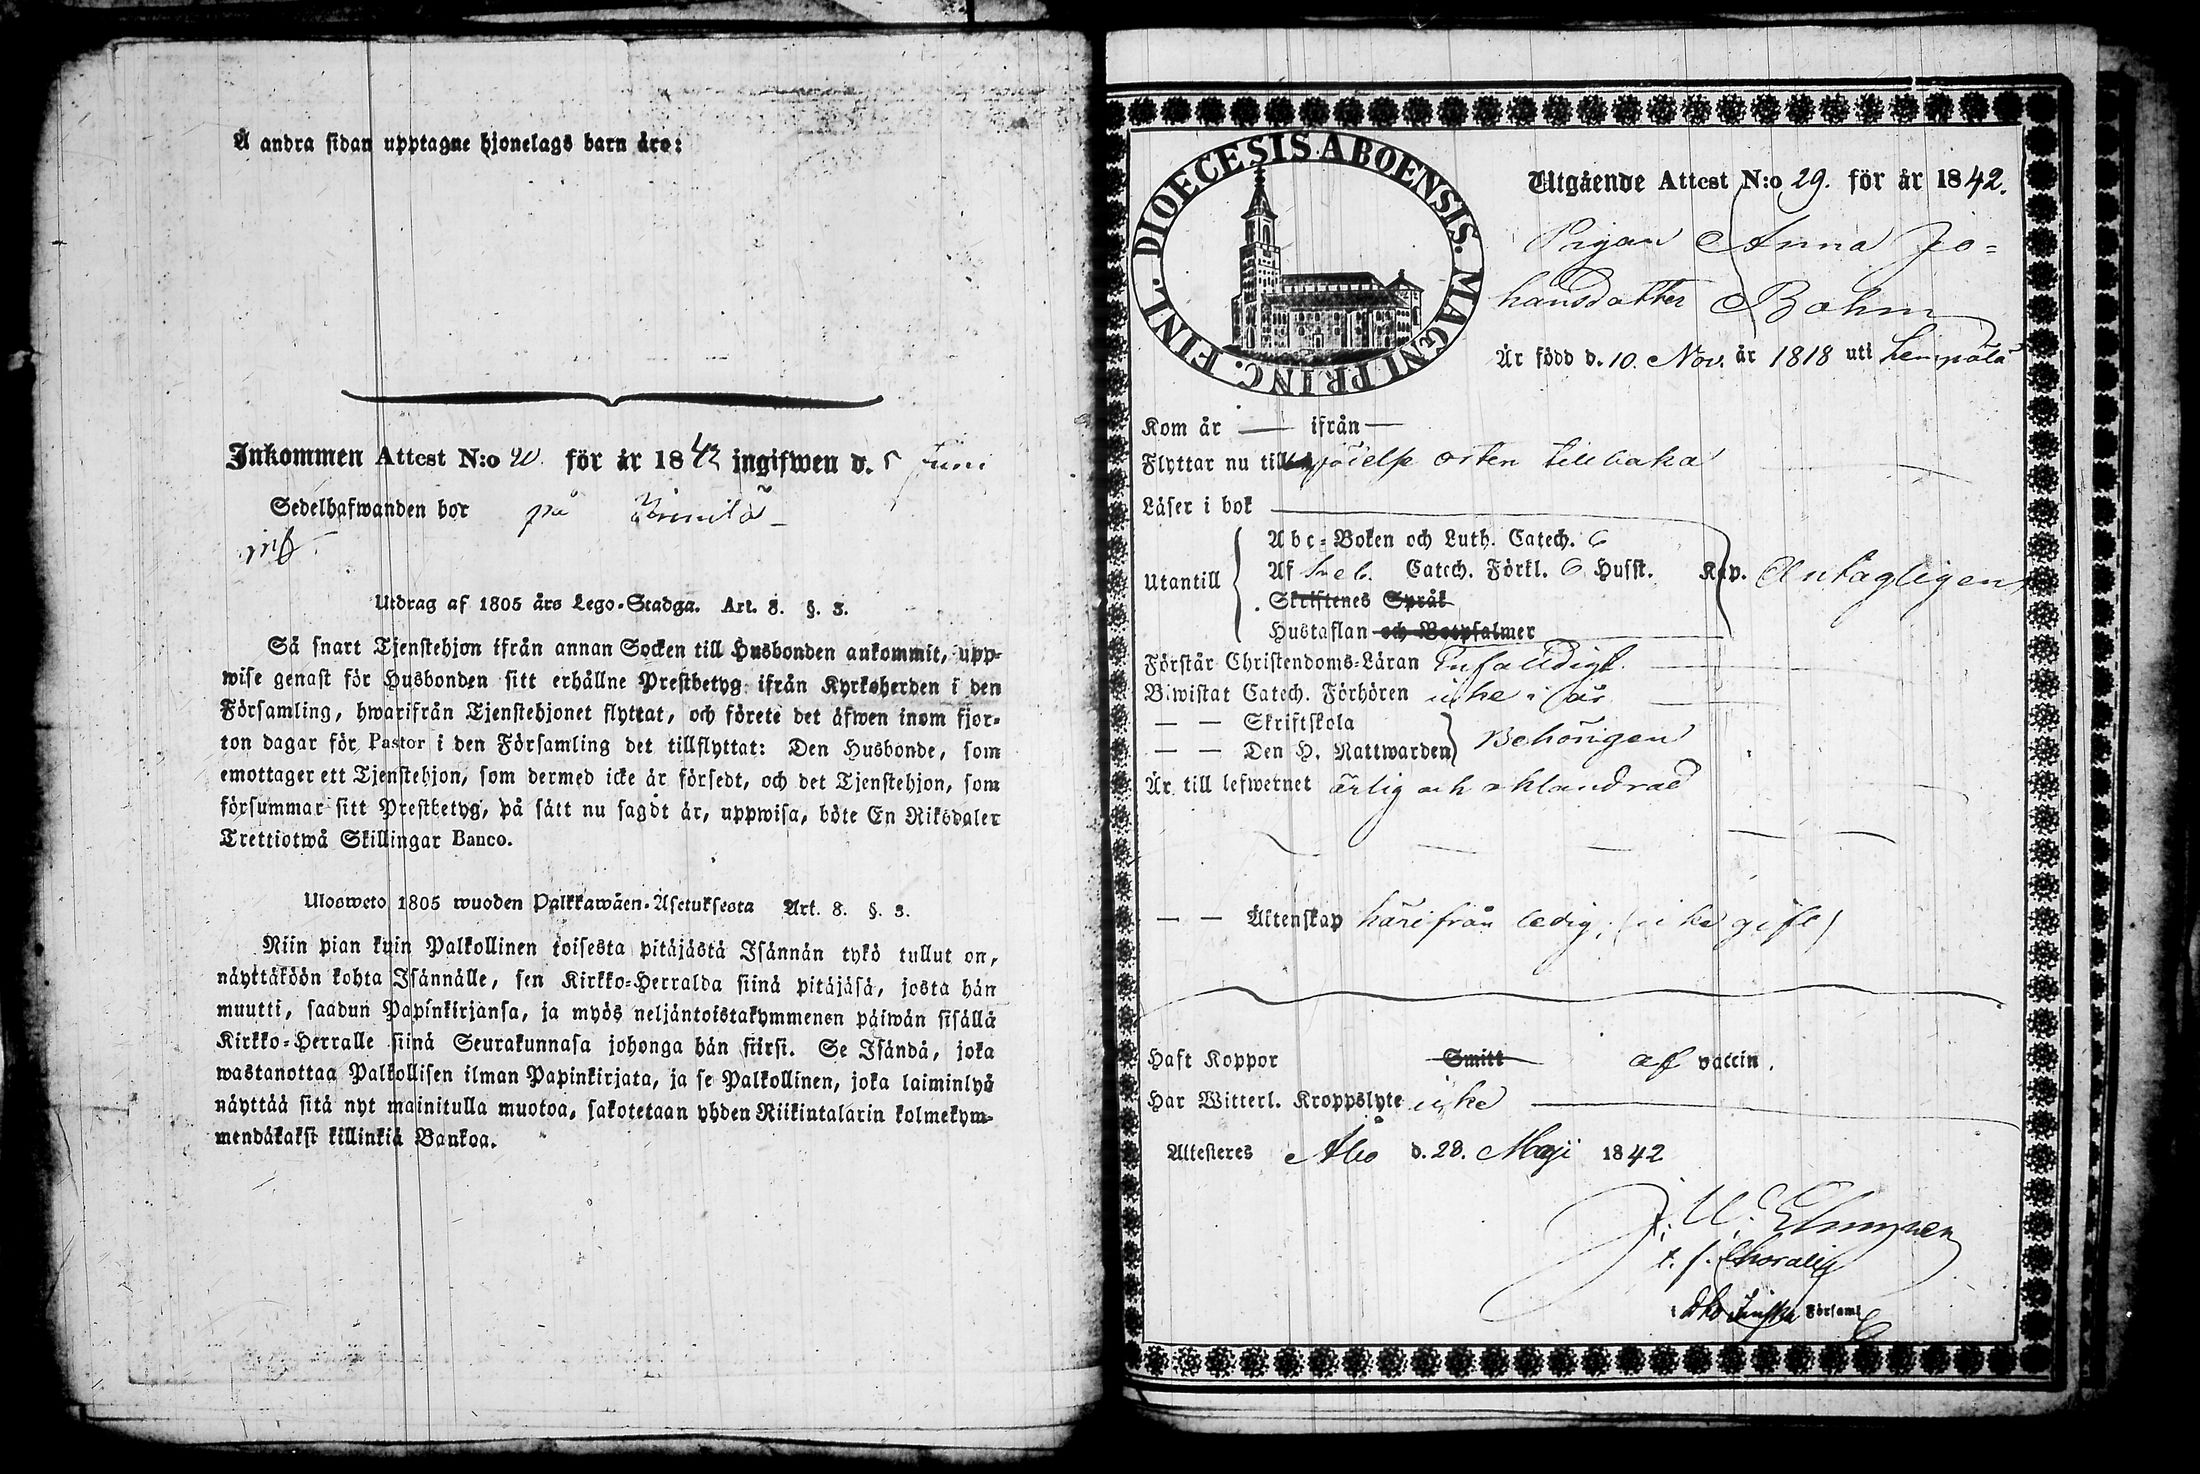 Å andra sidan upptagne hjonelags barn äro:
Inkommen Attest N:o 20. för år 1842 ingifwen d. 5 Juni
Sedelhafwanden bor på
Utdrag af 1805 års Lego-Stadga. Art. 8. §. 3.
Så snart Tjenstehjon ifrån annan Socken till Husbonden ankommit, upp-
wise genast för Husbonden sitt erhållne Prestbetyg ifrån Kyrkoherden i den
Församling, hwarifrån Tjenstehjonet flyttat, och förete det äfwen inom fjor-
ton dagar för Pastor i den Församling det tillflyttat: Den Husbonde, som
emottager ett Tjenstehjon, som dermed icke är försedt, och det Tjenstehjon, som
försummar sitt Prestbetyg, på sätt nu sagdt är, uppwisa, böte En Riksdaler
Trettiotwå Skillingar Banco.
Ulosweto 1805 wuoden Palkkawäen-Asetuksesta Art. 8. §. 3.
Niin pian kuin Palkollinen toisesta pitäjästä Isännän tykö tullut on,
näyttäköön kohta Isännälle, sen Kirkko-Herralda siinä pitäjäsä, josta hän
muutti, saadun Papinkirjansa, ja myös neljäntoistakymmenen päiwän sisällä
Kirkko-Herralle siinä Seurakunnasa johonga hän siirsi. Se Isändä, joka
wastanottaa Palkollisen ilman Papinkirjata, ja se Palkollinen, joka laiminlyö
näyttää sitä nyt mainitulla muotoa, sakotetaan yhden Riikintalarin kolmekym-
mendäkaksi killinkiä Bankoa.
FINL. DIOECESIS ABOENSIS. MAGNI PRINC.
Utgående Attest N:o 29. för år 1842.
Pigan Anna Jo=
hansdotter Bohm
Är född d. 10. Nov. år 1818 uti Lempälä
Kom år — ifrån —
Flyttar nu till orten tillbaka
Läser i bok
Abc-Boken och Luth. Catech. C
Utantill Af Sveb. Catech. Förkl. C Husst. Kap. Antagligen
Skriftenes Språk
Hustaflan och Botpsalmer
Förstår Christendoms-Läran Enfaldigt
Biwistat Catech. Förhören icke i år
— — Skriftskola
— — Den H. Nattwarden Behörigen
Är till lefwernet ärlig och oklandrad
— — Äktenskap härifrån ledig, (icke gift)
Haft Koppor Smitt af vaccin.
Har Witterl. Kroppslyte icke
Attesteres Åbo d. 28. Maji 1842
i Åbo Finska Församl